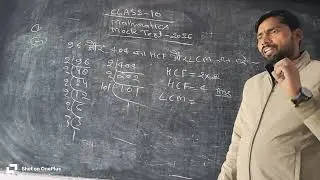 CLASS-10
Mathematics
Mock Test-2026
96 और 404 का HCF और LCM ज्ञात करें
2|96 2|404 HCF = 2×2
2|48 2|202 HCF = 4 Ans
2|24 101|101 LCM =
2|12 1
2|6
3|3
1
Shot on OnePlus